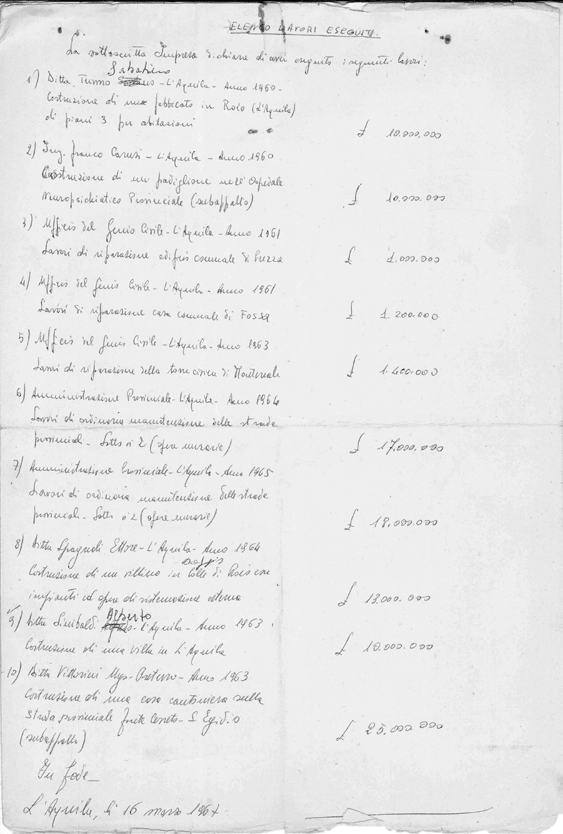 ELENCO LAVORI ESEGUITI
La sottoscritta Impresa dichiara di aver eseguito i seguenti lavori:
Sabatino
1) Ditta Turno - L'Aquila - Anno 1960 -
Costruzione di un fabbricato in Roio (L'Aquila)
di piani 3 per abitazioni £ 10.000.000
2) Ing. Franco Carusi - L'Aquila - Anno 1960
Costruzione di un padiglione nell'Ospedale
Neuropsichiatrico Provinciale (subappalto) £ 10.000.000
3) Ufficio del Genio Civile - L'Aquila - Anno 1961
Lavori di riparazione edificio comunale di £ 1.000.000
4) Ufficio del Genio Civile - L'Aquila - Anno 1961
Lavori di riparazione casa comunale di Fossa £ 1.200.000
5) Ufficio del Genio Civile - L'Aquila - Anno 1963
Lavori di riparazione della torre civica di Montereale £ 1.400.000
6) Amministrazione Provinciale - L'Aquila - Anno 1964
Lavori di ordinaria manutenzione delle strade
provinciali - Lotto n° 2 (opere murarie) £ 17.000.000
7) Amministrazione Provinciale - L'Aquila - Anno 1965
Lavori di ordinaria manutenzione delle strade
provinciali - Lotto n° 2 (opere murarie) £ 18.000.000
8) Ditta Spagnoli Ettore - L'Aquila - Anno 1964
Costruzione di un villino in Colle di con
impianti ed opere di sistemazione esterna £ 13.000.000
Alberto
9) Ditta Sinibaldi - L'Aquila - Anno 1963
Costruzione di una villa in L'Aquila £ 10.000.000
10) Ditta Vittorini Ugo - Preturo - Anno 1963
Costruzione di una casa cantoniera sulla
strada provinciale - S. Egidio
(subappalto) £ 25.000.000
In fede -
L'Aquila, li 16 marzo 1967